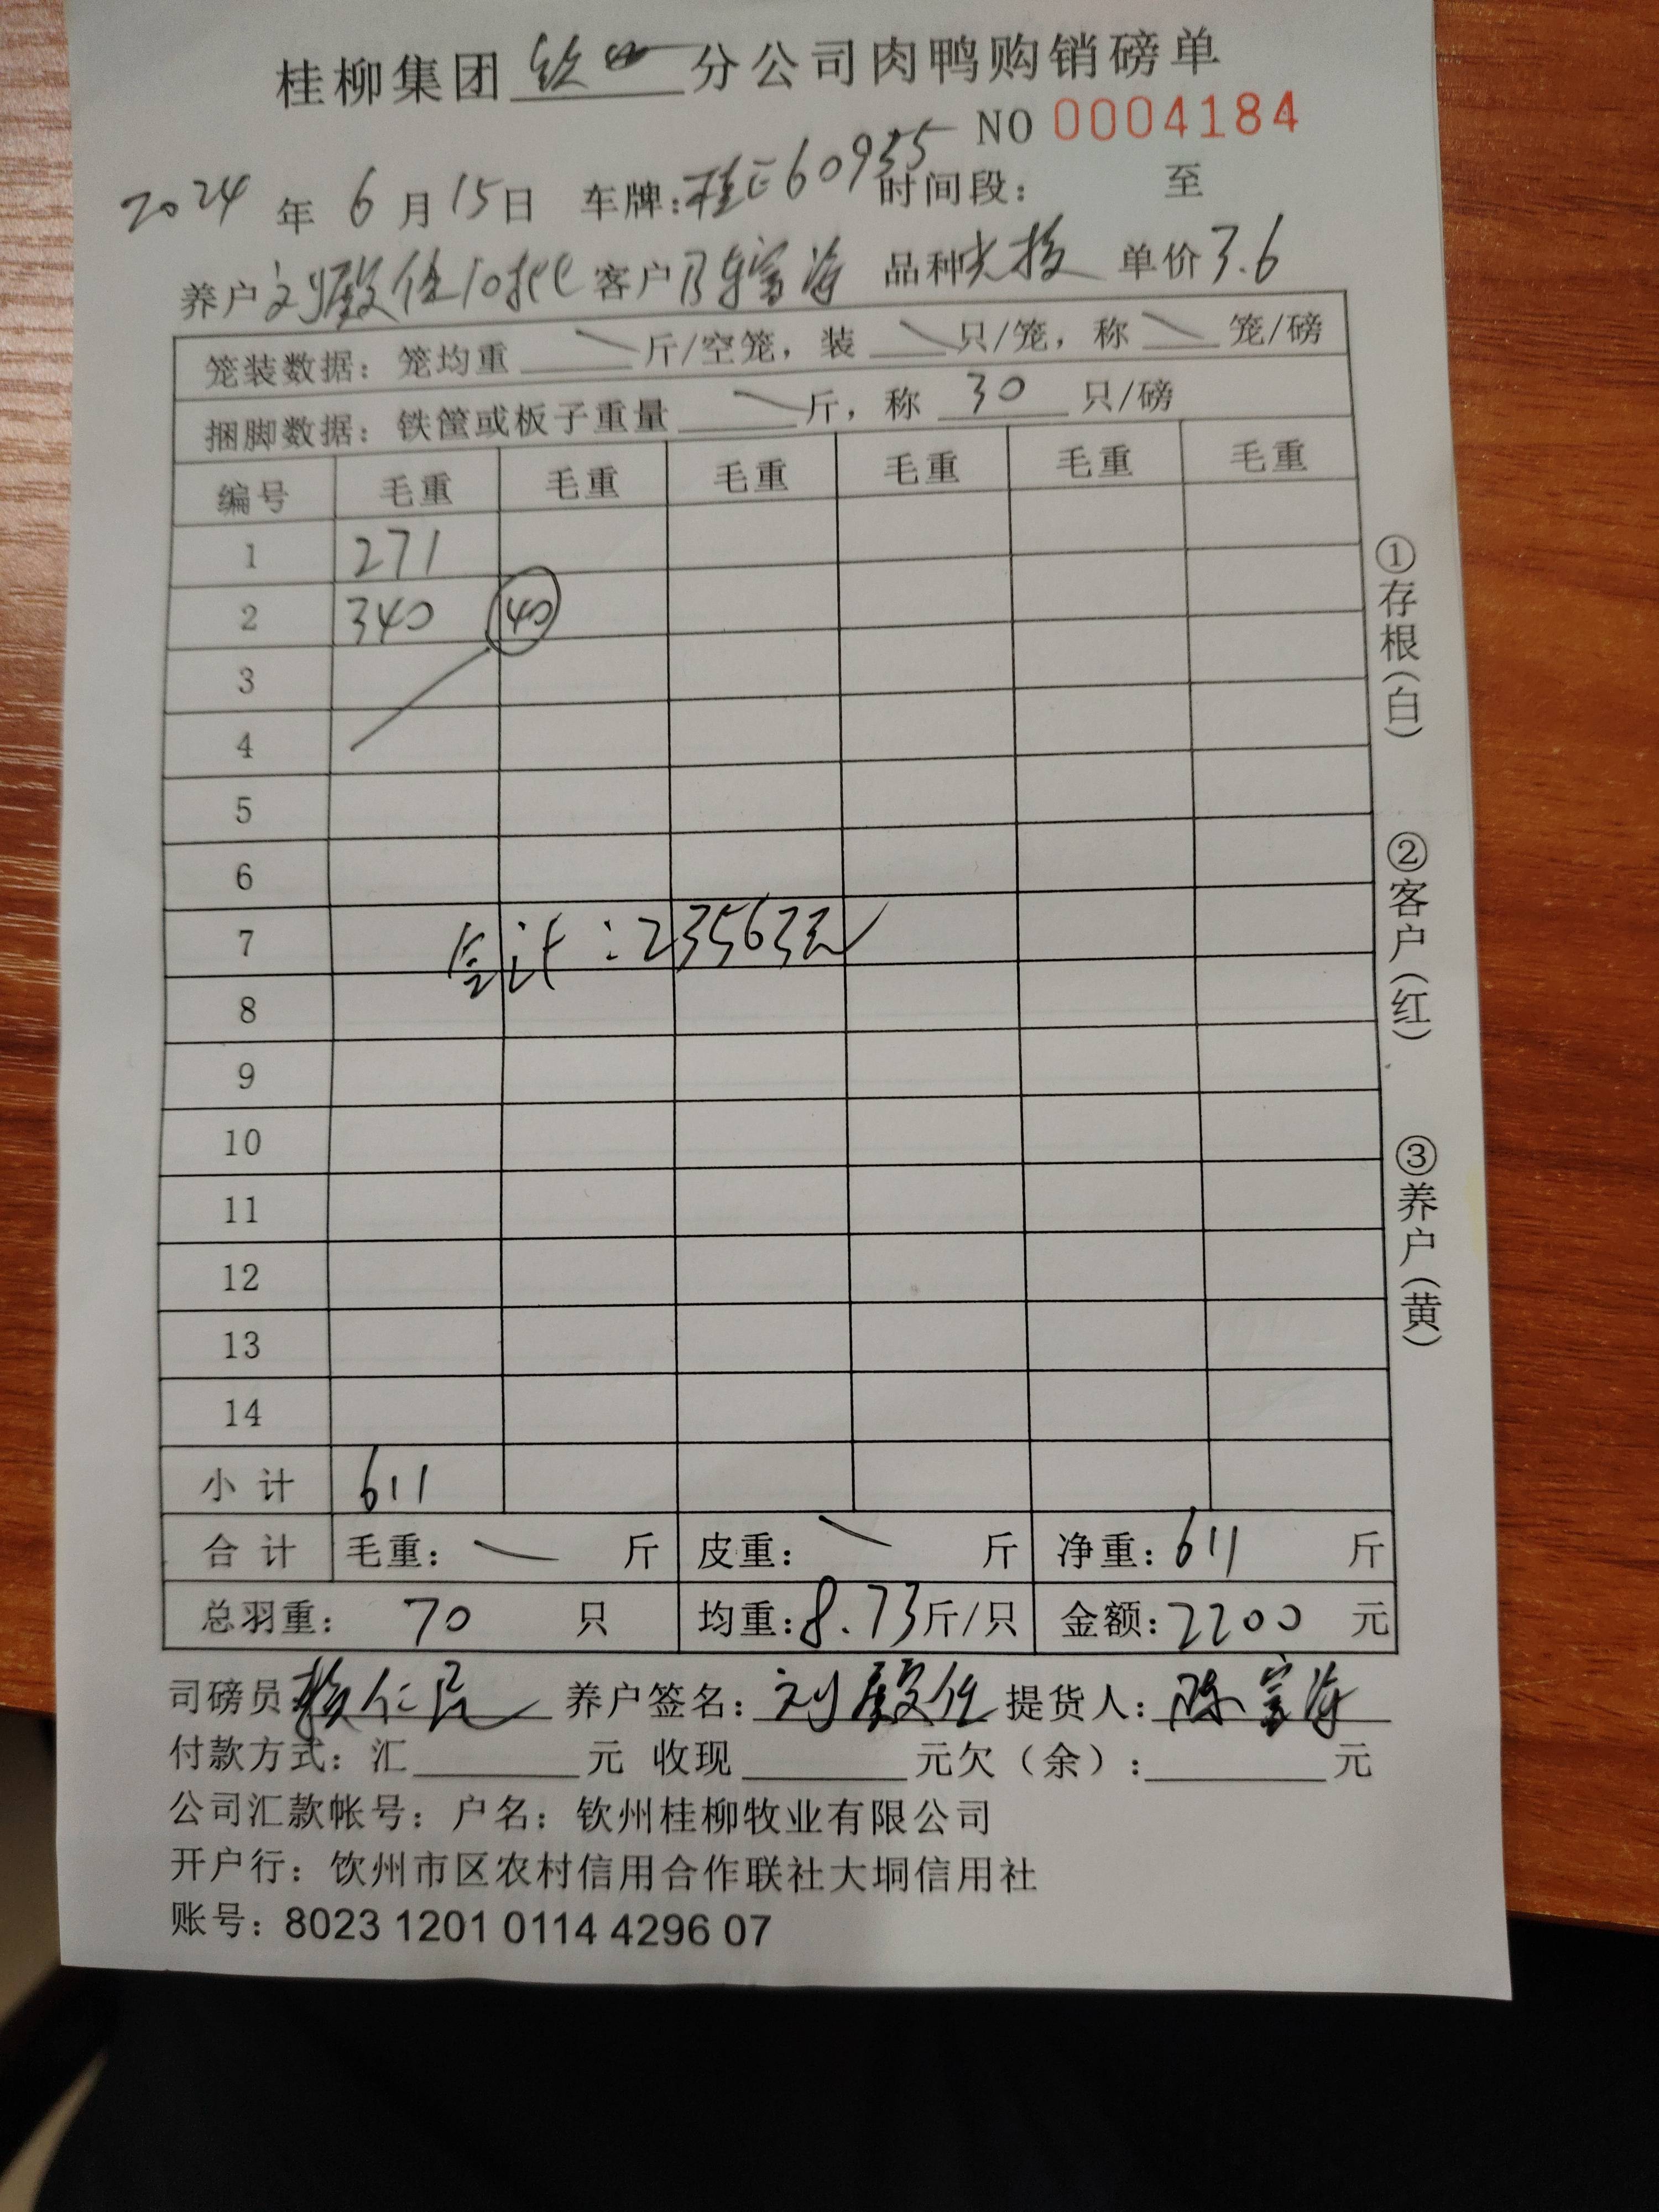 桂柳集团 钦四 分公司肉鸭购销磅单
NO 0004184
2024 年 6 月 15 日 车牌: 桂E60935 时间段: 至
养户 刘殿任10批 客户 陈富海 品种 单价 3.6
笼装数据: 笼均重 斤/空笼, 装 只/笼, 称 笼/磅
捆脚数据: 铁筐或板子重量 斤, 称 30 只/磅
编号 毛重 毛重 毛重 毛重 毛重 毛重
1 271
2 340 40
3
4
5
6
7 合计:23563元
8
9
10
11
12
13
14
小计 611
合计 毛重: 斤 皮重: 斤 净重: 611 斤
总羽重: 70 只 均重: 8.73 斤/只 金额: 2200 元
司磅员: 养户签名: 刘殿任 提货人: 陈富海
付款方式: 汇 元 收现 元欠(余): 元
公司汇款帐号: 户名: 钦州桂柳牧业有限公司
开户行: 饮州市区农村信用合作联社大垌信用社
账号: 8023 1201 0114 4296 07
①存根(白)
②客户(红)
③养户(黄)